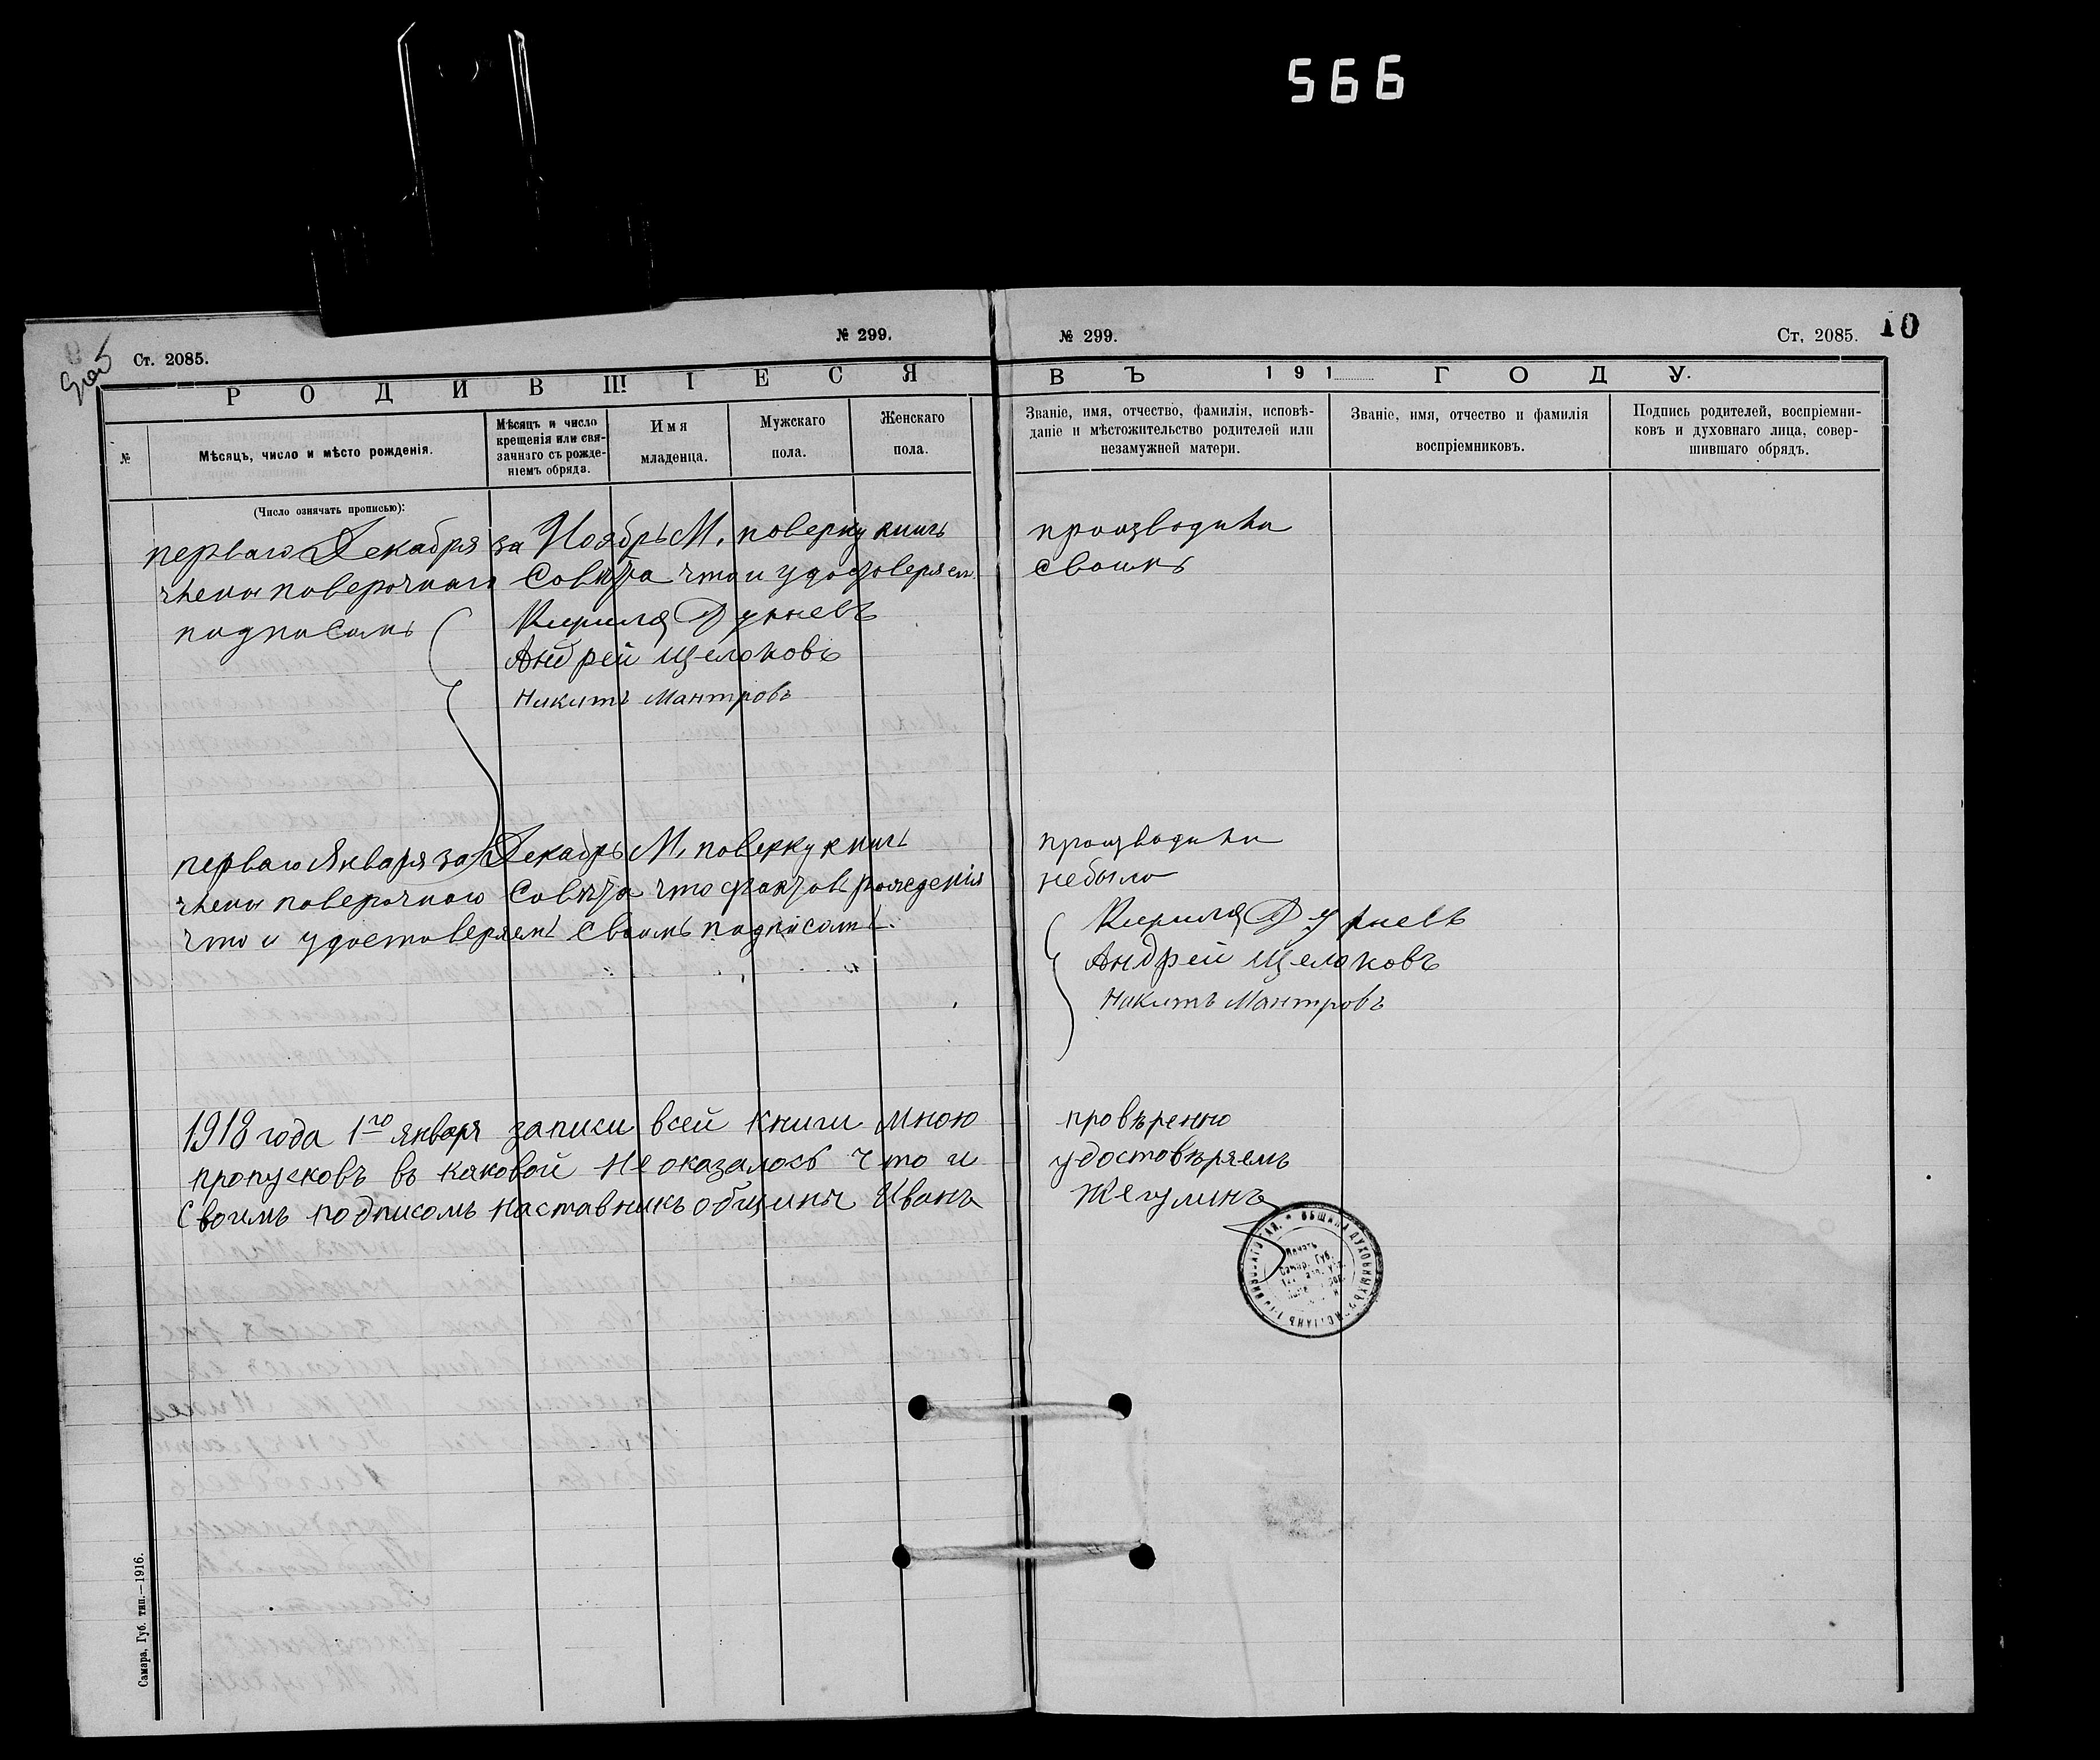 566
Ст. 2085.
№ 299.
Р О Д И В Ш І Е С Я
№
Мѣсяцъ, число и мѣсто рожденія.
Мѣсяцъ и число
крещенія или свя-
заннаго съ рожде-
ніемъ обряда.
Имя
младенца.
Мужскаго
пола.
Женскаго
пола.
(Число означать прописью):
перваго Декабря за Ноябрь М. поверку книгъ
члены поверочнаго Совѣта что и удостоверяем
подписомъ
Кирила Дурневъ
Андрей Щелоковъ
Никитъ Мантровъ
перваго Января за Декабрь М. поверку книгъ
члены поверочнаго Совѣта что фактовъ рожденія
что и удостоверяемъ своимъ подписомъ.
1918 года 1го января записи всей книги мною
пропусковъ въ каковой не оказалось что и
своимъ подписомъ наставникъ общины Иванъ
Самара, Губ. тип.—1916.
№ 299.
Ст. 2085.
10
В Ъ 191 Г О Д У.
Званіе, имя, отчество, фамилія, исповѣ-
даніе и мѣстожительство родителей или
незамужней матери.
Званіе, имя, отчество и фамилія
воспріемниковъ.
Подпись родителей, воспріемни-
ковъ и духовнаго лица, совер-
шившаго обрядъ.
производили
своимъ
производили
небыло
Кирила Дурневъ
Андрей Щелоковъ
Никитъ Мантровъ
провѣренно
удостовѣряемъ
Жегулинъ
ОБЩИНА ДУХОВНЫХЪ
Печать
Самар. Губ.